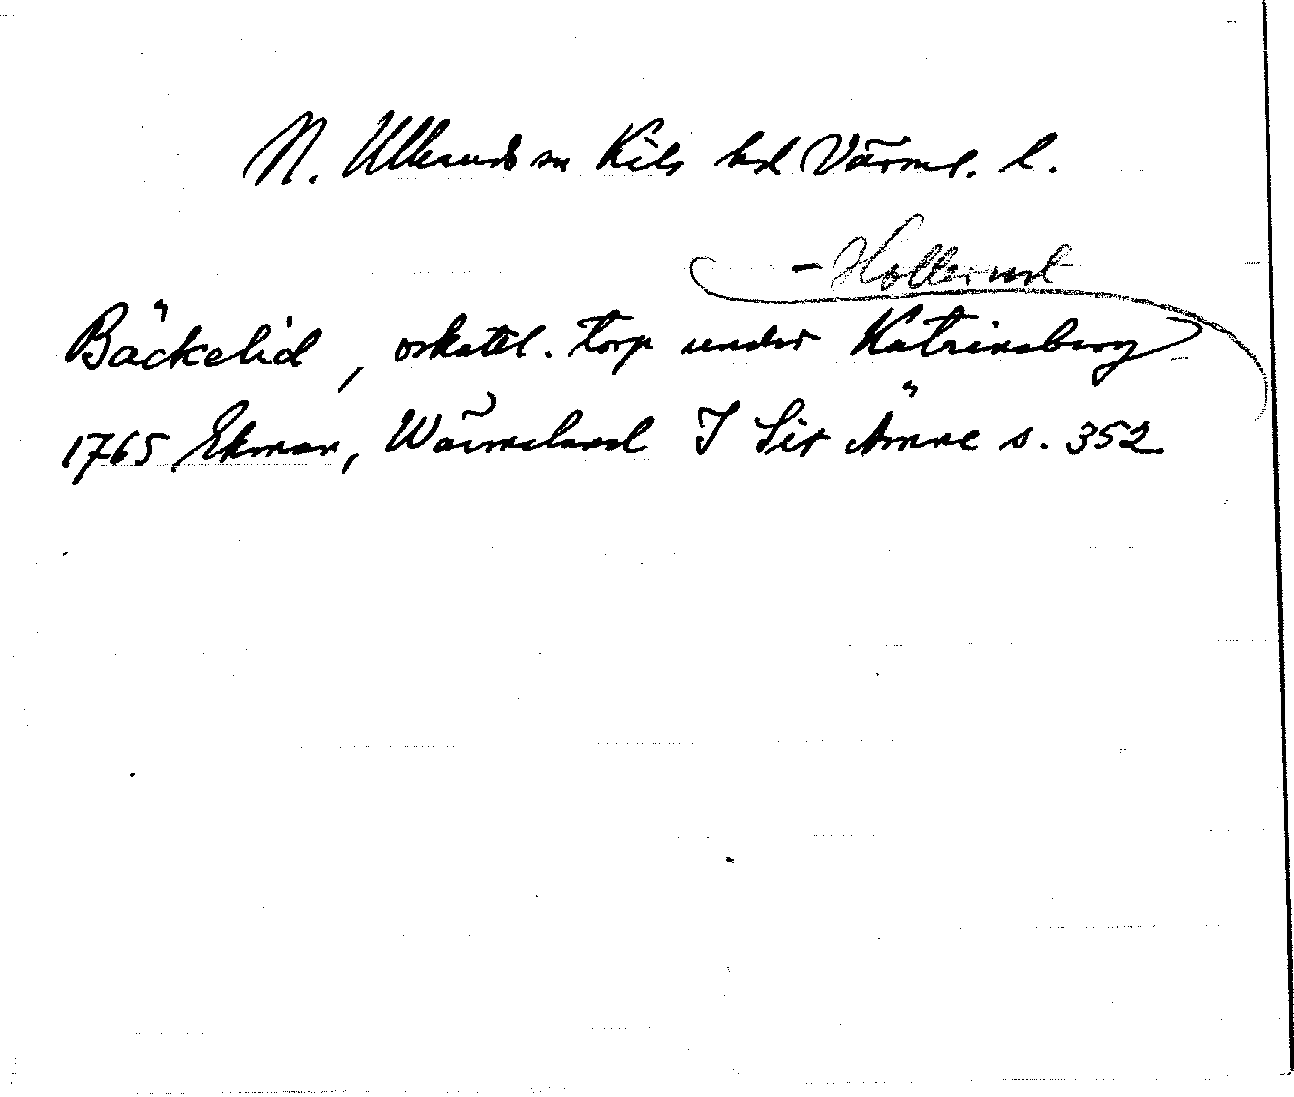 N. Ulleruds sn Kils hd Värml. l.
- Hollerud
Bäckelid, oskattl. torp under Katrineberg
1765 Ekman, Wärmeland I Sit Ämne s. 352